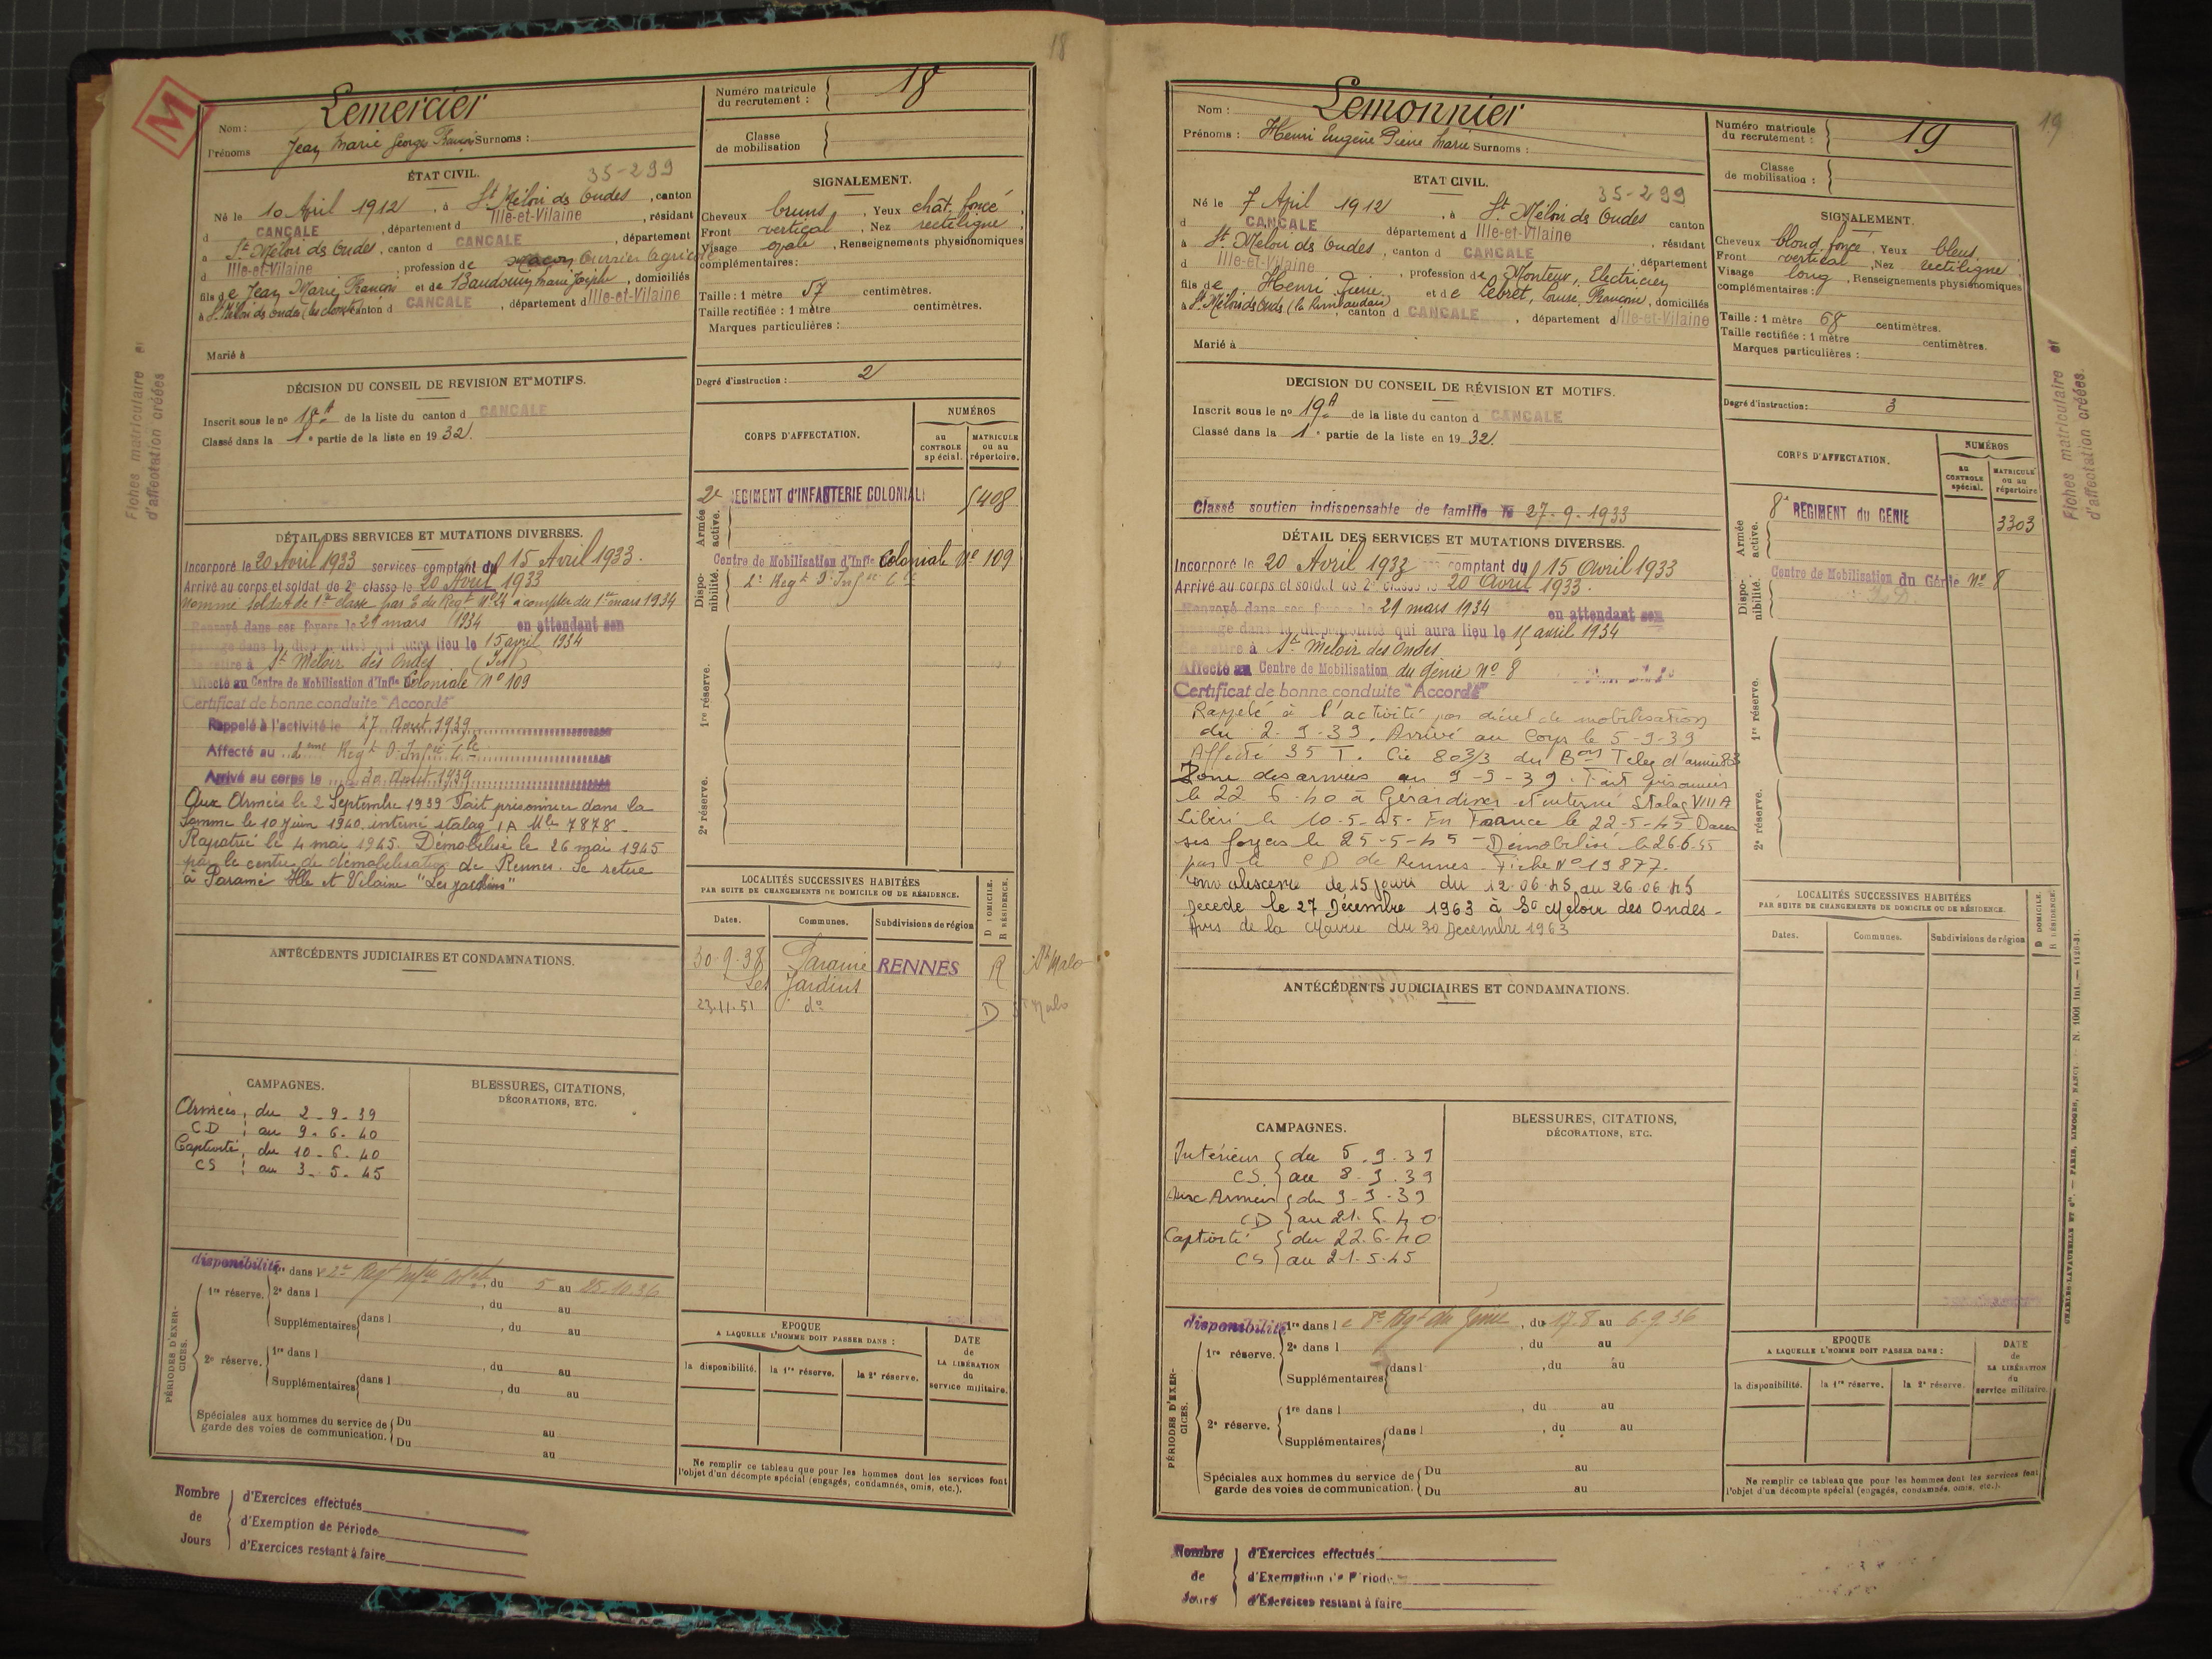 18
M
Nom : Lemercier
Prénoms Jean Marie Georges François Surnoms :
Numéro matricule du recrutement : 18
Classe de mobilisation
ÉTAT CIVIL.
35-299
Né le 10 April 1912, à St Méloir ds Ondes, canton
d CANCALE, département d Ille-et-Vilaine, résidant
à St Méloir ds Ondes, canton d CANCALE, département
d Ille-et-Vilaine, profession de maçon Ouvrier Agricole
fils de Jean Marie François et de Baudouin Marie Josèphe, domiciliés
à St Méloir ds Ondes canton d CANCALE, département d Ille-et-Vilaine
Marié à
SIGNALEMENT.
Cheveux bruns, Yeux chât. foncé,
Front vertical, Nez rectiligne,
Visage ovale, Renseignements physionomiques
complémentaires :
Taille : 1 mètre 57 centimètres.
Taille rectifiée : 1 mètre centimètres.
Marques particulières :
Degré d'instruction : 2
DÉCISION DU CONSEIL DE REVISION ET MOTIFS.
Inscrit sous le no 18 A de la liste du canton d CANCALE
Classé dans la 1e partie de la liste en 1932.
CORPS D'AFFECTATION.
NUMÉROS
au CONTROLE spécial.
MATRICULE ou au répertoire.
Armée active.
2e REGIMENT D'INFANTERIE COLONIALE 5408
Disponibilité.
Centre de Mobilisation d'Infie Coloniale No 109
2e Regt d'Infie Cle
1re réserve.
2e réserve.
DÉTAIL DES SERVICES ET MUTATIONS DIVERSES.
Incorporé le 20 Avril 1933 services comptant du 15 Avril 1933.
Arrivé au corps et soldat de 2e classe le 20 Avril 1933
Nommé soldat de 1re classe par O du Regt No 24 à compter du 1er mars 1934
Renvoyé dans ses foyers le 21 mars 1934 en attendant son
passage dans la disponibilité qui aura lieu le 15 avril 1934
Se retire à St Méloir des Ondes
Affecté au Centre de Mobilisation d'Infie Coloniale No 109
Certificat de bonne conduite "Accordé"
Rappelé à l'activité le 27 Aout 1939
Affecté au 2eme Regt d'Infie Cle
Arrivé au corps le 30 Aout 1939
Aux Armées le 2 Septembre 1939 Fait prisonnier dans la
Somme le 10 juin 1940 interné stalag IA Mle 7878.
Rapatrié le 4 mai 1945. Démobilisé le 26 mai 1945
par le centre de démobilisation de Rennes. Se retire
à Paramé Ille et Vilaine "Les jardins"
ANTÉCÉDENTS JUDICIAIRES ET CONDAMNATIONS.
LOCALITÉS SUCCESSIVES HABITÉES
PAR SUITE DE CHANGEMENTS DE DOMICILE OU DE RÉSIDENCE.
D DOMICILE. R RÉSIDENCE.
Dates. Communes. Subdivisions de région
30-9-38 Paramé RENNES R St Malo
Les Jardins
23.11.51 do D St Malo
CAMPAGNES.
Armées, du 2-9-39
CD au 9-6-40
Captivité, du 10-6-40
CS au 3-5-45
BLESSURES, CITATIONS,
DÉCORATIONS, ETC.
PÉRIODES D'EXERCICES.
disponibilité 1re dans le 2e Regt Infie Cole, du 5 au 25.10.36
1re réserve. 2e dans l , du au
Supplémentaires dans l , du au
2e réserve. 1re dans l , du au
Supplémentaires dans l , du au
Spéciales aux hommes du service de garde des voies de communication. Du au
Du au
EPOQUE
A LAQUELLE L'HOMME DOIT PASSER DANS :
la disponibilité. la 1re réserve. la 2e réserve.
DATE de LA LIBÉRATION du service militaire.
Ne remplir ce tableau que pour les hommes dont les services font
l'objet d'un décompte spécial (engagés, condamnés, omis, etc.).
Nombre de Jours
d'Exercices effectués
d'Exemption de Période
d'Exercices restant à faire
Fiches matriculaire et
d'affectation créées
19
Nom : Lemonnier
Prénoms : Henri Eugène Pierre Marie Surnoms :
Numéro matricule du recrutement : 19
Classe de mobilisation :
ETAT CIVIL.
35-299
Né le 7 April 1912, à St Méloir ds Ondes canton
d CANCALE département d Ille-et-Vilaine, résidant
à St Méloir ds Ondes, canton d CANCALE, département
d Ille-et-Vilaine, profession de Monteur, Electricien
fils de Henri et de Lebret, Louise, Françoise, domiciliés
à St Méloir ds Onds canton d CANCALE, département d Ille-et-Vilaine
Marié à
SIGNALEMENT.
Cheveux blond foncé, Yeux bleus,
Front vertical, Nez rectiligne,
Visage long, Renseignements physionomiques
complémentaires :
Taille : 1 mètre 68 centimètres.
Taille rectifiée : 1 mètre centimètres.
Marques particulières :
Degré d'instruction : 3
DECISION DU CONSEIL DE RÉVISION ET MOTIFS.
Inscrit sous le no 19 A de la liste du canton d CANCALE
Classé dans la 1e partie de la liste en 1932.
Classé soutien indispensable de famille le 27-9-1933
CORPS D'AFFECTATION.
NUMÉROS
au CONTROLE spécial.
MATRICULE ou au répertoire
Armée active.
8e REGIMENT du GENIE 3303
Disponibilité.
Centre de Mobilisation du Génie No 8
1re réserve.
2e réserve.
DÉTAIL DES SERVICES ET MUTATIONS DIVERSES.
Incorporé le 20 Avril 1933 comptant du 15 Avril 1933
Arrivé au corps et soldat de 2e classe le 20 Avril 1933.
Renvoyé dans ses foyers le 21 mars 1934 en attendant son
passage dans la disponibilité qui aura lieu le 15 avril 1934
Se retire à St Méloir des Ondes
Affecté au Centre de Mobilisation du génie No 8
Certificat de bonne conduite "Accordé"
Rappelé à l'activité par décret de mobilisation
du 2-9-39. Arrivé au Corps le 5-9-39
Affecté 35 T. Cie 803/3 du Bon Teleg d'armée 803
Zone des armées au 9-9-39. Fait prisonnier
le 22 6 40 à Gérardmer et interné Stalag VIII A
Libéré le 10-5-45- En France le 22-5-45 Dans
ses foyers le 25-5-45 - Démobilisé le 26.6.45
par le CD de Rennes. Fiche No 19877.
Convalescence de 15 jours du 12.06.45 au 26.06.45
Décédé le 27 Décembre 1963 à St Méloir des Ondes -
Avis de la Mairie du 30 Décembre 1963
ANTÉCÉDENTS JUDICIAIRES ET CONDAMNATIONS.
LOCALITÉS SUCCESSIVES HABITÉES
PAR SUITE DE CHANGEMENTS DE DOMICILE OU DE RÉSIDENCE.
D DOMICILE. R RÉSIDENCE.
Dates. Communes. Subdivisions de région
CAMPAGNES.
Intérieur du 5.9.39
CS au 8.9.39
Aux Armées du 9-9-39
CD au 21.6.40
Captivité du 22.6-40
CS au 21-5-45
BLESSURES, CITATIONS,
DÉCORATIONS, ETC.
PÉRIODES D'EXERCICES.
disponibilité 1re dans le 8e Rgt du Génie, du 17.8 au 6.9.36
1re réserve. 2e dans l , du au
Supplémentaires dans l , du au
2e réserve. 1re dans l , du au
Supplémentaires dans l , du au
Spéciales aux hommes du service de garde des voies de communication. Du au
Du au
EPOQUE
A LAQUELLE L'HOMME DOIT PASSER DANS :
la disponibilité. la 1re réserve. la 2e réserve.
DATE de LA LIBÉRATION du service militaire.
Ne remplir ce tableau que pour les hommes dont les services font
l'objet d'un décompte spécial (engagés, condamnés, omis, etc.).
Nombre de Jours
d'Exercices effectués
d'Exemption de Période
d'Exercices restant à faire
Fiches matriculaire et
d'affectation créées.
CHARLES-LAVAUZELLE ET Cie. — PARIS, LIMOGES, NANCY.